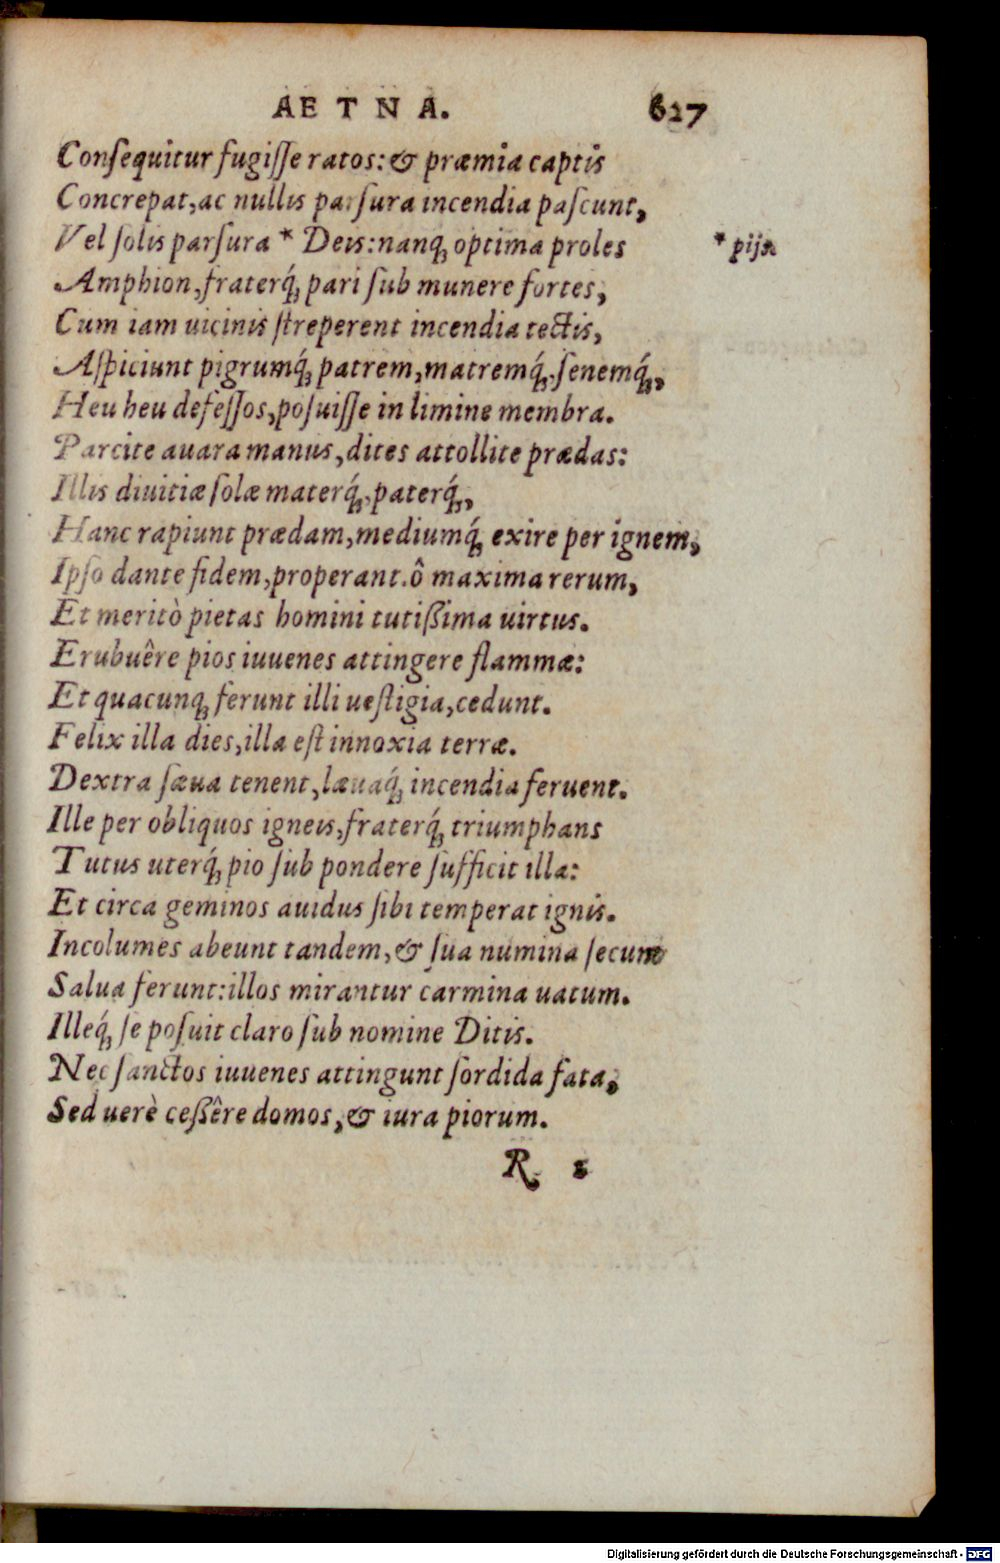 AETNA. 627
Conſequitur fugiſſe ratos: & præmia captis
Concrepat, ac nullis parſura incendia paſcunt,
Vel ſolis parſura * Deis: nanq́; optima proles * pijs
Amphion, fraterq́; pari ſub munere fortes,
Cum iam uicinis ſtreperent incendia tectis,
Aſpiciunt pigrumq́; patrem, matremq́;, ſenemq́;,
Heu heu defeſſos, poſuiſſe in limine membra.
Parcite auara manus, dites attollite prædas:
Illis diuitiæ ſolæ materq́;, paterq́;,
Hanc rapiunt prædam, mediumq́; exire per ignem,
Ipſo dante fidem, properant. ô maxima rerum,
Et meritò pietas homini tutißima uirtus.
Erubuêre pios iuuenes attingere flammæ:
Et quacunq; ferunt illi ueſtigia, cedunt.
Felix illa dies, illa eſt innoxia terræ.
Dextra ſæua tenent, læuaq́; incendia feruent.
Ille per obliquos igneis, fraterq́; triumphans
Tutus uterq́; pio ſub pondere ſufficit illa:
Et circa geminos auidus ſibi temperat ignis.
Incolumes abeunt tandem, & ſua numina ſecum
Salua ferunt: illos mirantur carmina uatum.
Illeq́; ſe poſuit claro ſub nomine Ditis.
Nec ſanctos iuuenes attingunt ſordida fata,
Sed uerè ceßêre domos, & iura piorum.
R 2
Digitalisierung gefördert durch die Deutsche Forschungsgemeinschaft - DFG